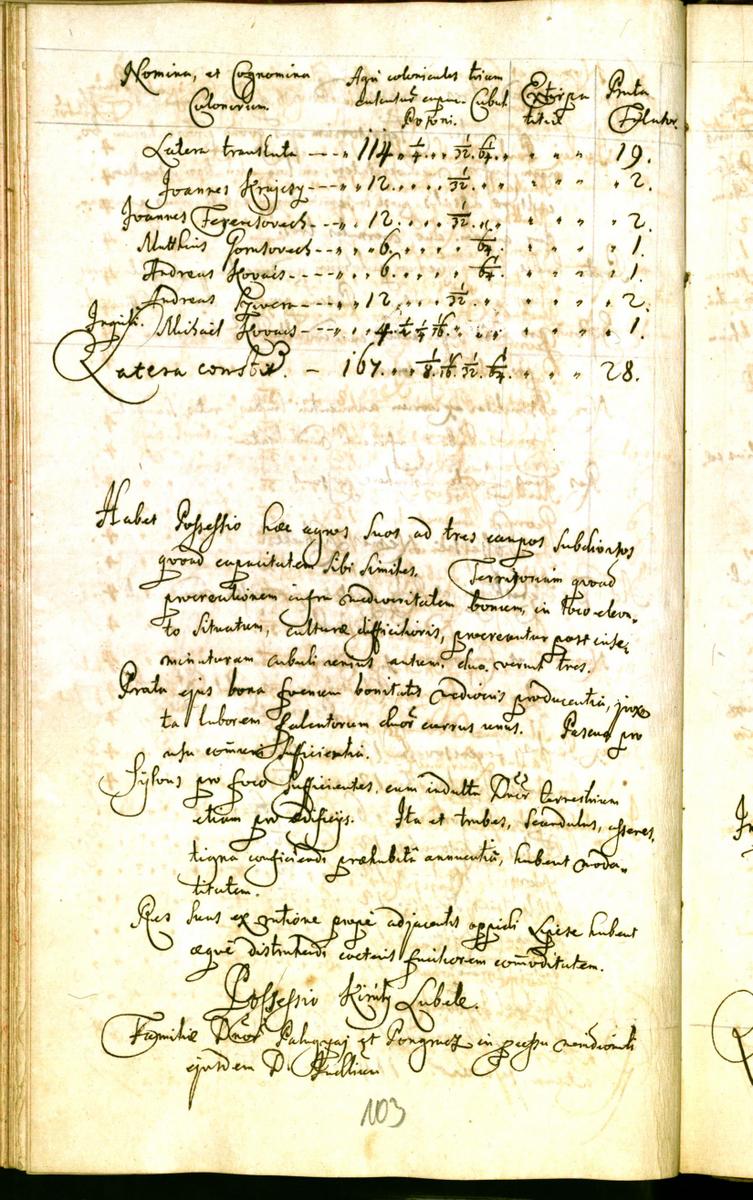 Nomina, et Cognomina Agri coloniculos trium Extirpa Prata
Colonorum. Cubul. titia Falcator.
Posoni.
Latera translata 114 1/4 1/32 1/64 19.
Joannes Krajcsy 12 1/32 2.
Joannes Ferencsovech 12 1/32 2.
Matthias Gomsovech 6 1/64 1.
Andreas Kovács 6 1/64 1.
Andreas 12 1/32 2.
Inquil. Michael Kovacs 4 1/2 1/4 1/16 1.
Latera constit. 167 1/8 1/16 1/32 1/64 28.
Habet Possessio hæc agros suos ad tres campos subdivisos
quoad capacitatem sibi similes. Territorium quoad
procreationem infra mediocritatem bonum, in loco eleva-
to situatum, culturæ difficilioris, procreantur post inse-
minaturam cubuli unius autum. duo, vernæ tres.
Prata ejus bona foenum bonitatis mediocris producentia, jux-
ta laborem falcatorum duor currus unus. Pascua pro
usu com̄uni sufficientia.
Sylvas pro foco sufficientes, cum indultu Dnor terrestrium
etiam pro ædificijs. Ita et trabes, scandulas, asseres,
tigna conficiendi præhabitâ annuentiâ, habent moda-
litatem.
Res suas ex ratione propè adjacentis oppidi Lipcse habent
æquè distrahendi cæteris faciliorem com̄oditatem.
Possessio Király Lubele.
Familiæ Dnor Palugyaj et Pongracz in processu meridionali
ejusdem D.
103